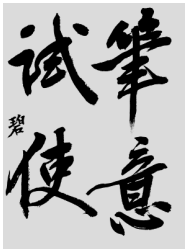 筆意
試使
碧